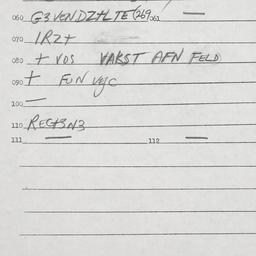 060 G3VENDZHLTE (269 061 —
070 IRZ+
080 + VOS VAKST AFN FELD
090 + FUN
100 —
110 REGI3N3
111 — 112 —